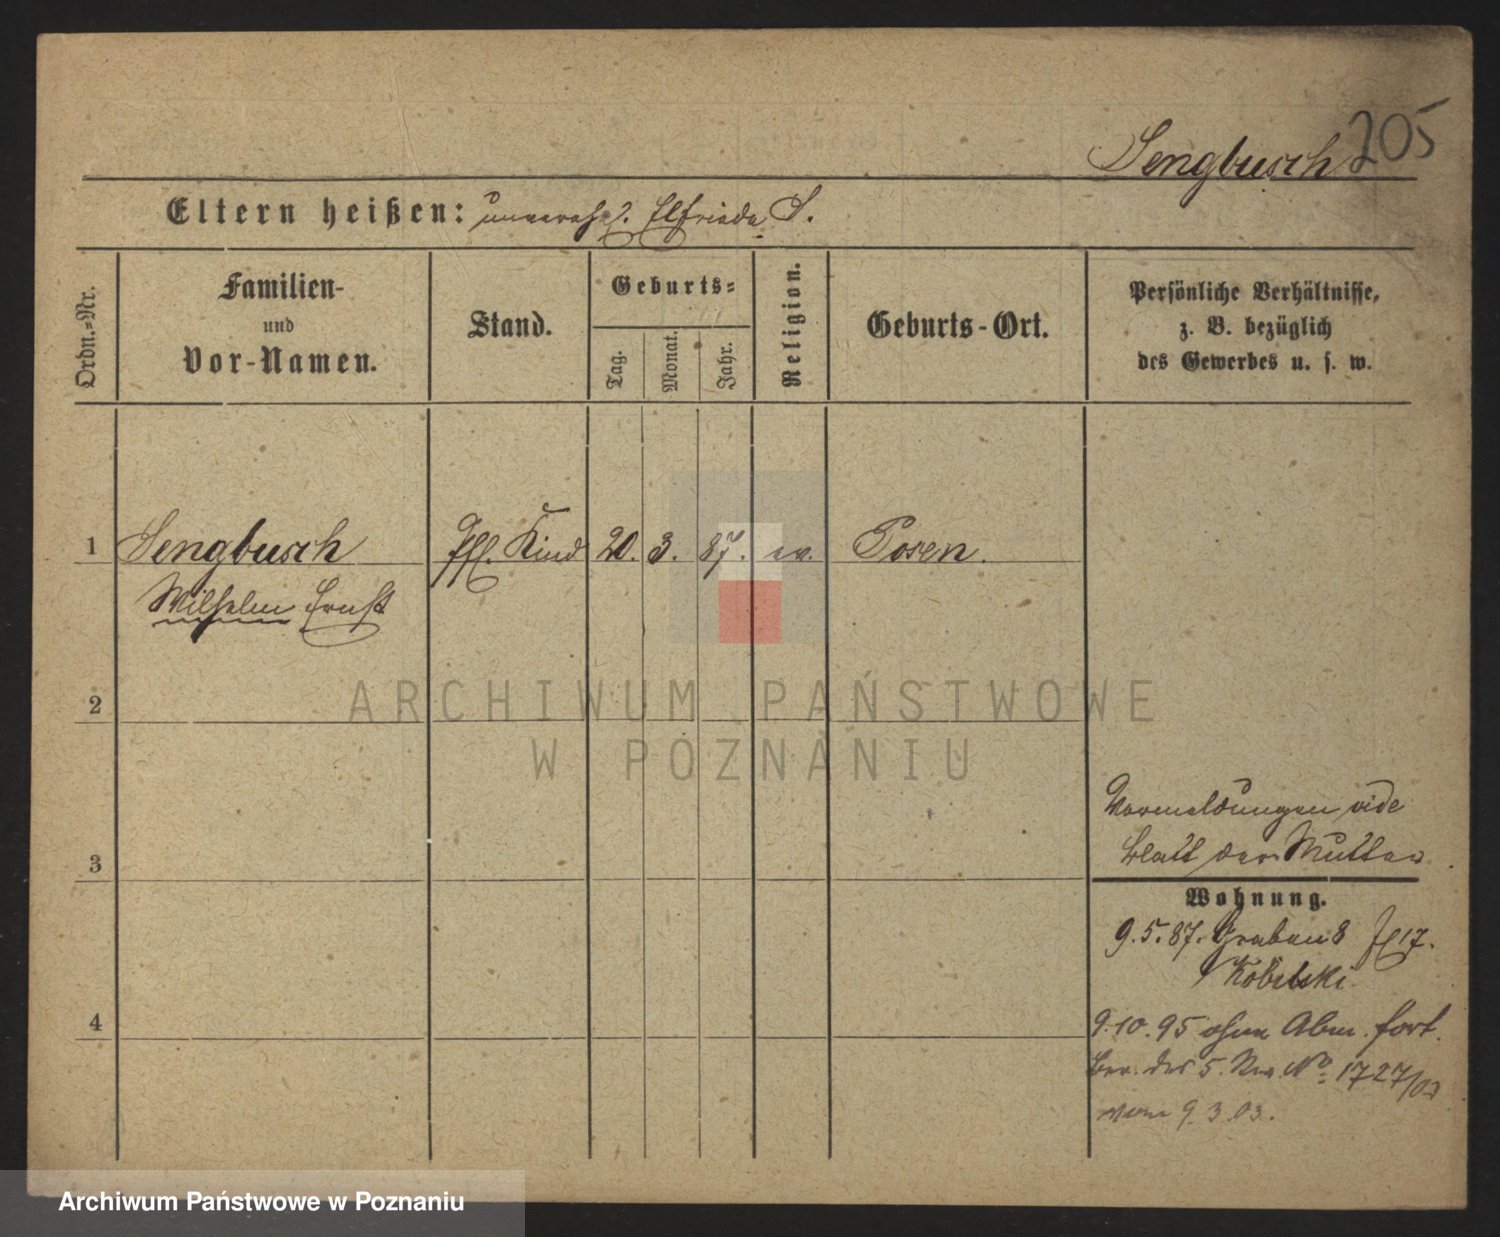 205
Sengbusch
Eltern heißen: unverehel. Elfriede S.
Ordn.=Nr.
Familien-
und
Vor-Namen.
Stand.
Geburts=
Tag.
Monat.
Jahr.
Religion.
Geburts-Ort.
Persönliche Verhältnisse,
z. B. bezüglich
des Gewerbes u. s. w.
1 Sengbusch Pfl. Kind 20. 3. 87. ev. Posen.
Wilhelm Ernst
2
ARCHIWUM PAŃSTWOWE
W POZNANIU
Vormeldungen vide
3 Blatt der Mutter
Wohnung.
9.5.87. Graben 8
4
9.10.95 ohne Abm. fort.
Ber. des 5. Rev. No 1727/03
vom 9.3.03.
Archiwum Państwowe w Poznaniu